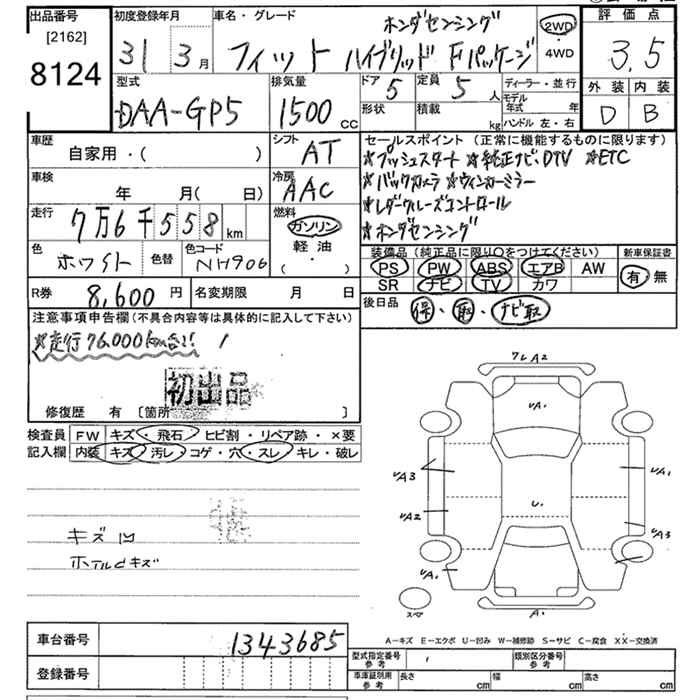 出品番号 初度登録年月 車名・グレード ホンダセンシング 2WD 評価点
[2162] 31年 3月 フィット ハイブリッド Fパッケージ ・4WD 3.5
8124 型式 排気量 ドア 5 定員 5人 ディーラー・並行 外装 内装
DAA-GP5 1500cc 形状 積載 kg モデル年式 年 D B
ハンドル 左・右
車歴 自家用・( ) シフト AT セールスポイント(正常に機能するものに限ります)
★プッシュスタート ★純正ナビ、DTV ★ETC
車検 年 月( 日) 冷房 AAC ★バックカメラ ★ウィンカーミラー
走行 7万6千558km 燃料 ガソリン ★レーダークルーズコントロール
軽油 ★ホンダセンシング
色 ホワイト 色替 色コード NH906 ( ・ ) 装備品(純正品に限り○をつけてください) 新車保証書
PS PW ABS エアB AW 有・無
SR ナビ TV カワ
R券 8,600円 名変期限 月 日 後日品 保・取・ナビ取
注意事項申告欄(不具合内容等は具体的に記入して下さい)
※走行76,000km台!!
初出品
修復歴 有 [箇所 ]
検査員 FW キズ・飛石・ヒビ割・リペア跡・×要
記入欄 内装 キズ・汚レ・コゲ・穴・スレ・キレ・破レ
キズ凹
ホイルdキズ
フレA2
UA.
UA3 UA1
UA2 U.
UA3
UA.
スペア A.
A-キズ E-エクボ U-凹み W-補修跡 S-サビ C-腐食 XX-交換済
車台番号 1343685
型式指定番号 参考 類別区分番号 参考
登録番号 車庫証明用 参考 長さ cm 幅 cm 高さ cm